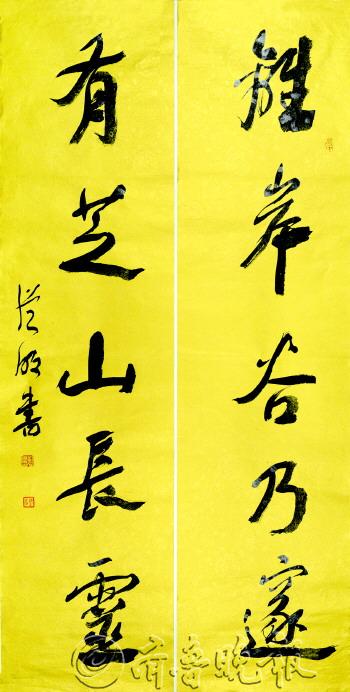 離岸谷乃邃
有芝山長靈
書
齐鲁晚报